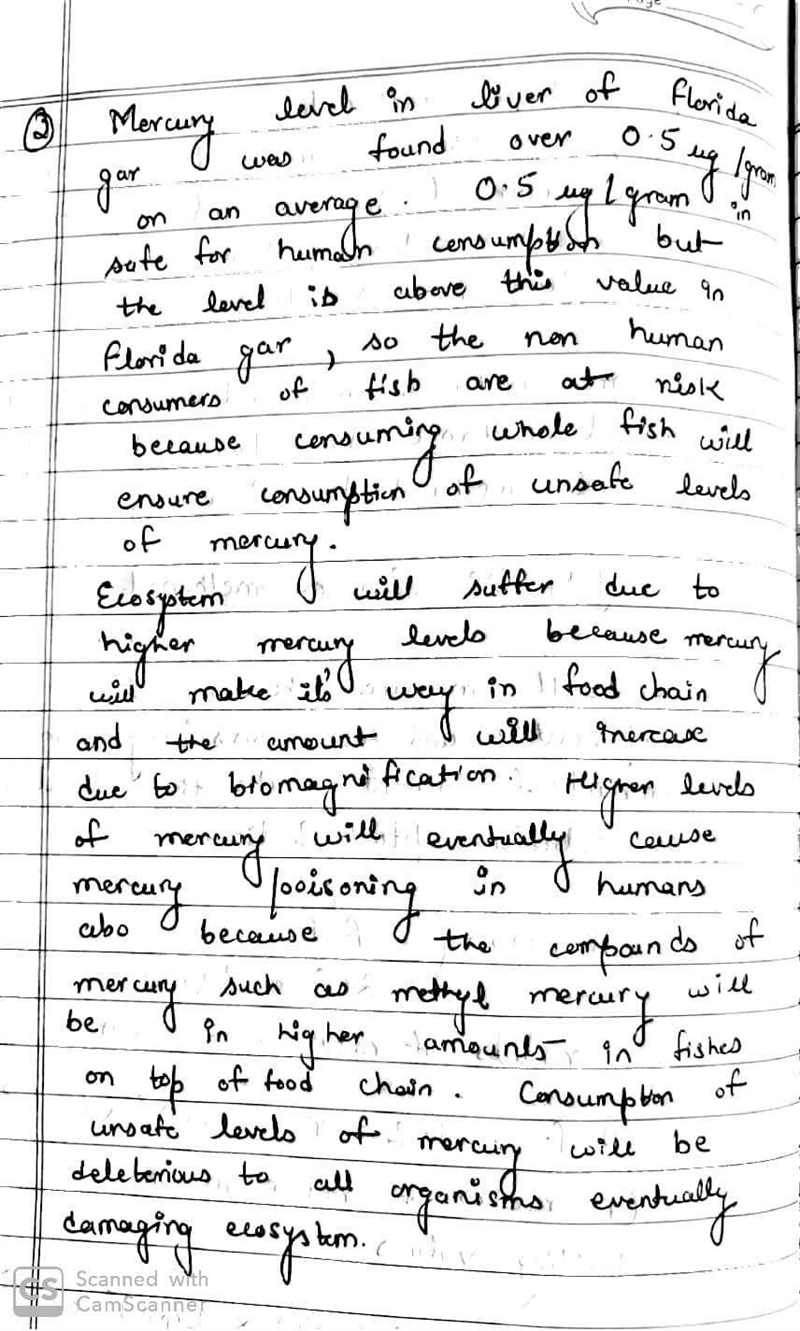 ②
Mercury level in liver of Florida
gar was found over 0.5 ug/gram
on an average. 0.5 ug/gram in
safe for human consumption but
the level is above this value in
Florida gar, so the non human
consumers of fish are at risk
because consuming whole fish will
ensure consumption of unsafe levels
of mercury.
Ecosystem will suffer due to
higher mercury levels because mercury
will make it's way in food chain
and the amount will increase
due to biomagnification. Higher levels
of mercury will eventually cause
mercury pooisoning in humans
also because the compounds of
mercury such as methyl mercury will
be in higher amounts in fishes
on top of food chain. Consumption of
unsafe levels of mercury will be
deleterious to all organisms eventually
damaging ecosystem.
CS Scanned with
CamScanner